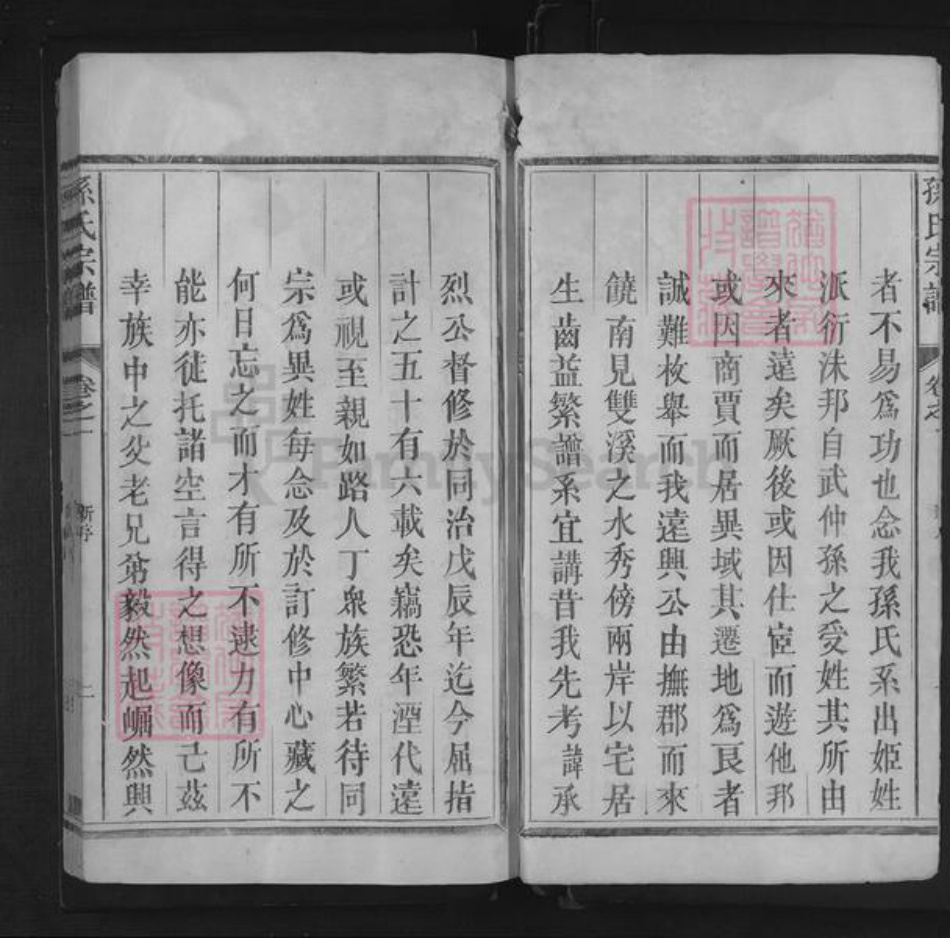 者不易爲功也念我孫氏系出姬姓
派衍洙邦自武仲孫之受姓其所由
來者遠矣厥後或因仕宦而遊他邦
或因商賈而居異域其遷地爲良者
誠難枚舉而我遠興公由撫郡而來
饒南見雙溪之水秀傍兩岸以宅居
生齒益繁譜系宜講昔我先考諱承
烈公督修於同治戊辰年迄今屈指
計之五十有六載矣竊恐年湮代遠
或視至親如路人丁衆族繁若待同
宗爲異姓每念及於訂修中心藏之
何日忘之而才有所不逮力有所不
能亦徒托諸空言得之想像而已茲
幸族中之父老兄弟毅然起崛然興
孫氏宗譜
卷之一
新序
二
孫氏宗譜
FamilySearch